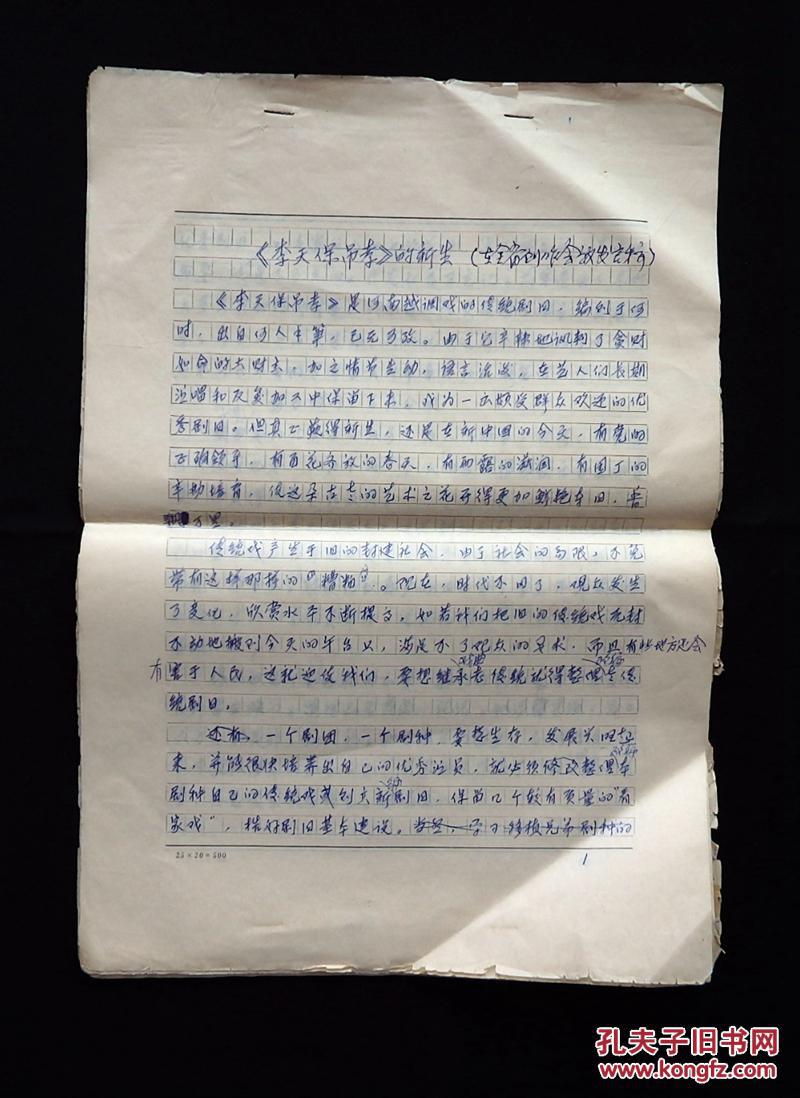 1
《李天保吊孝》的新生（在全省剧作会议发言稿）
《李天保吊孝》是河南越调戏的传统剧目，编列于何
时，出自何人手笔，已无可考。由于它辛辣地讽刺了贪财
如命的大财主，加之情节生动，语言活泼，在艺人们长期
演唱和反复加工中保留下来，成为一出颇受群众欢迎的优
秀剧目。但真正获得新生，还是在新中国的今天，有党的
正确领导，有百花齐放的春天，有雨露的滋润，有园丁的
辛勤培育，使这朵古老的艺术之花开得更加鲜艳夺目，香
万里。
传统戏产生于旧的封建社会，由于社会的局限，不免
带有这样那样的"糟粕"。现在，时代不同了，观众发生
了变化，欣赏水平不断提高，如若我们把旧的传统戏原封
不动地搬到今天的舞台上，满足不了观众的要求，而且有些地方还会
有害于人民，这就迫使我们，要想继承老传统就得整理老传
统剧目。
还有，一个剧团，一个剧种，要想生存，发展关起
来，并能很快培养出自己的优秀演员，就必须修改整理本
剧种自己的传统戏或创编新剧目，保留几个较有质量的"看
家戏"，搞好剧目基本建设。当然，学习移植兄弟剧种的
25×20=500
1
孔夫子旧书网
www.kongfz.com